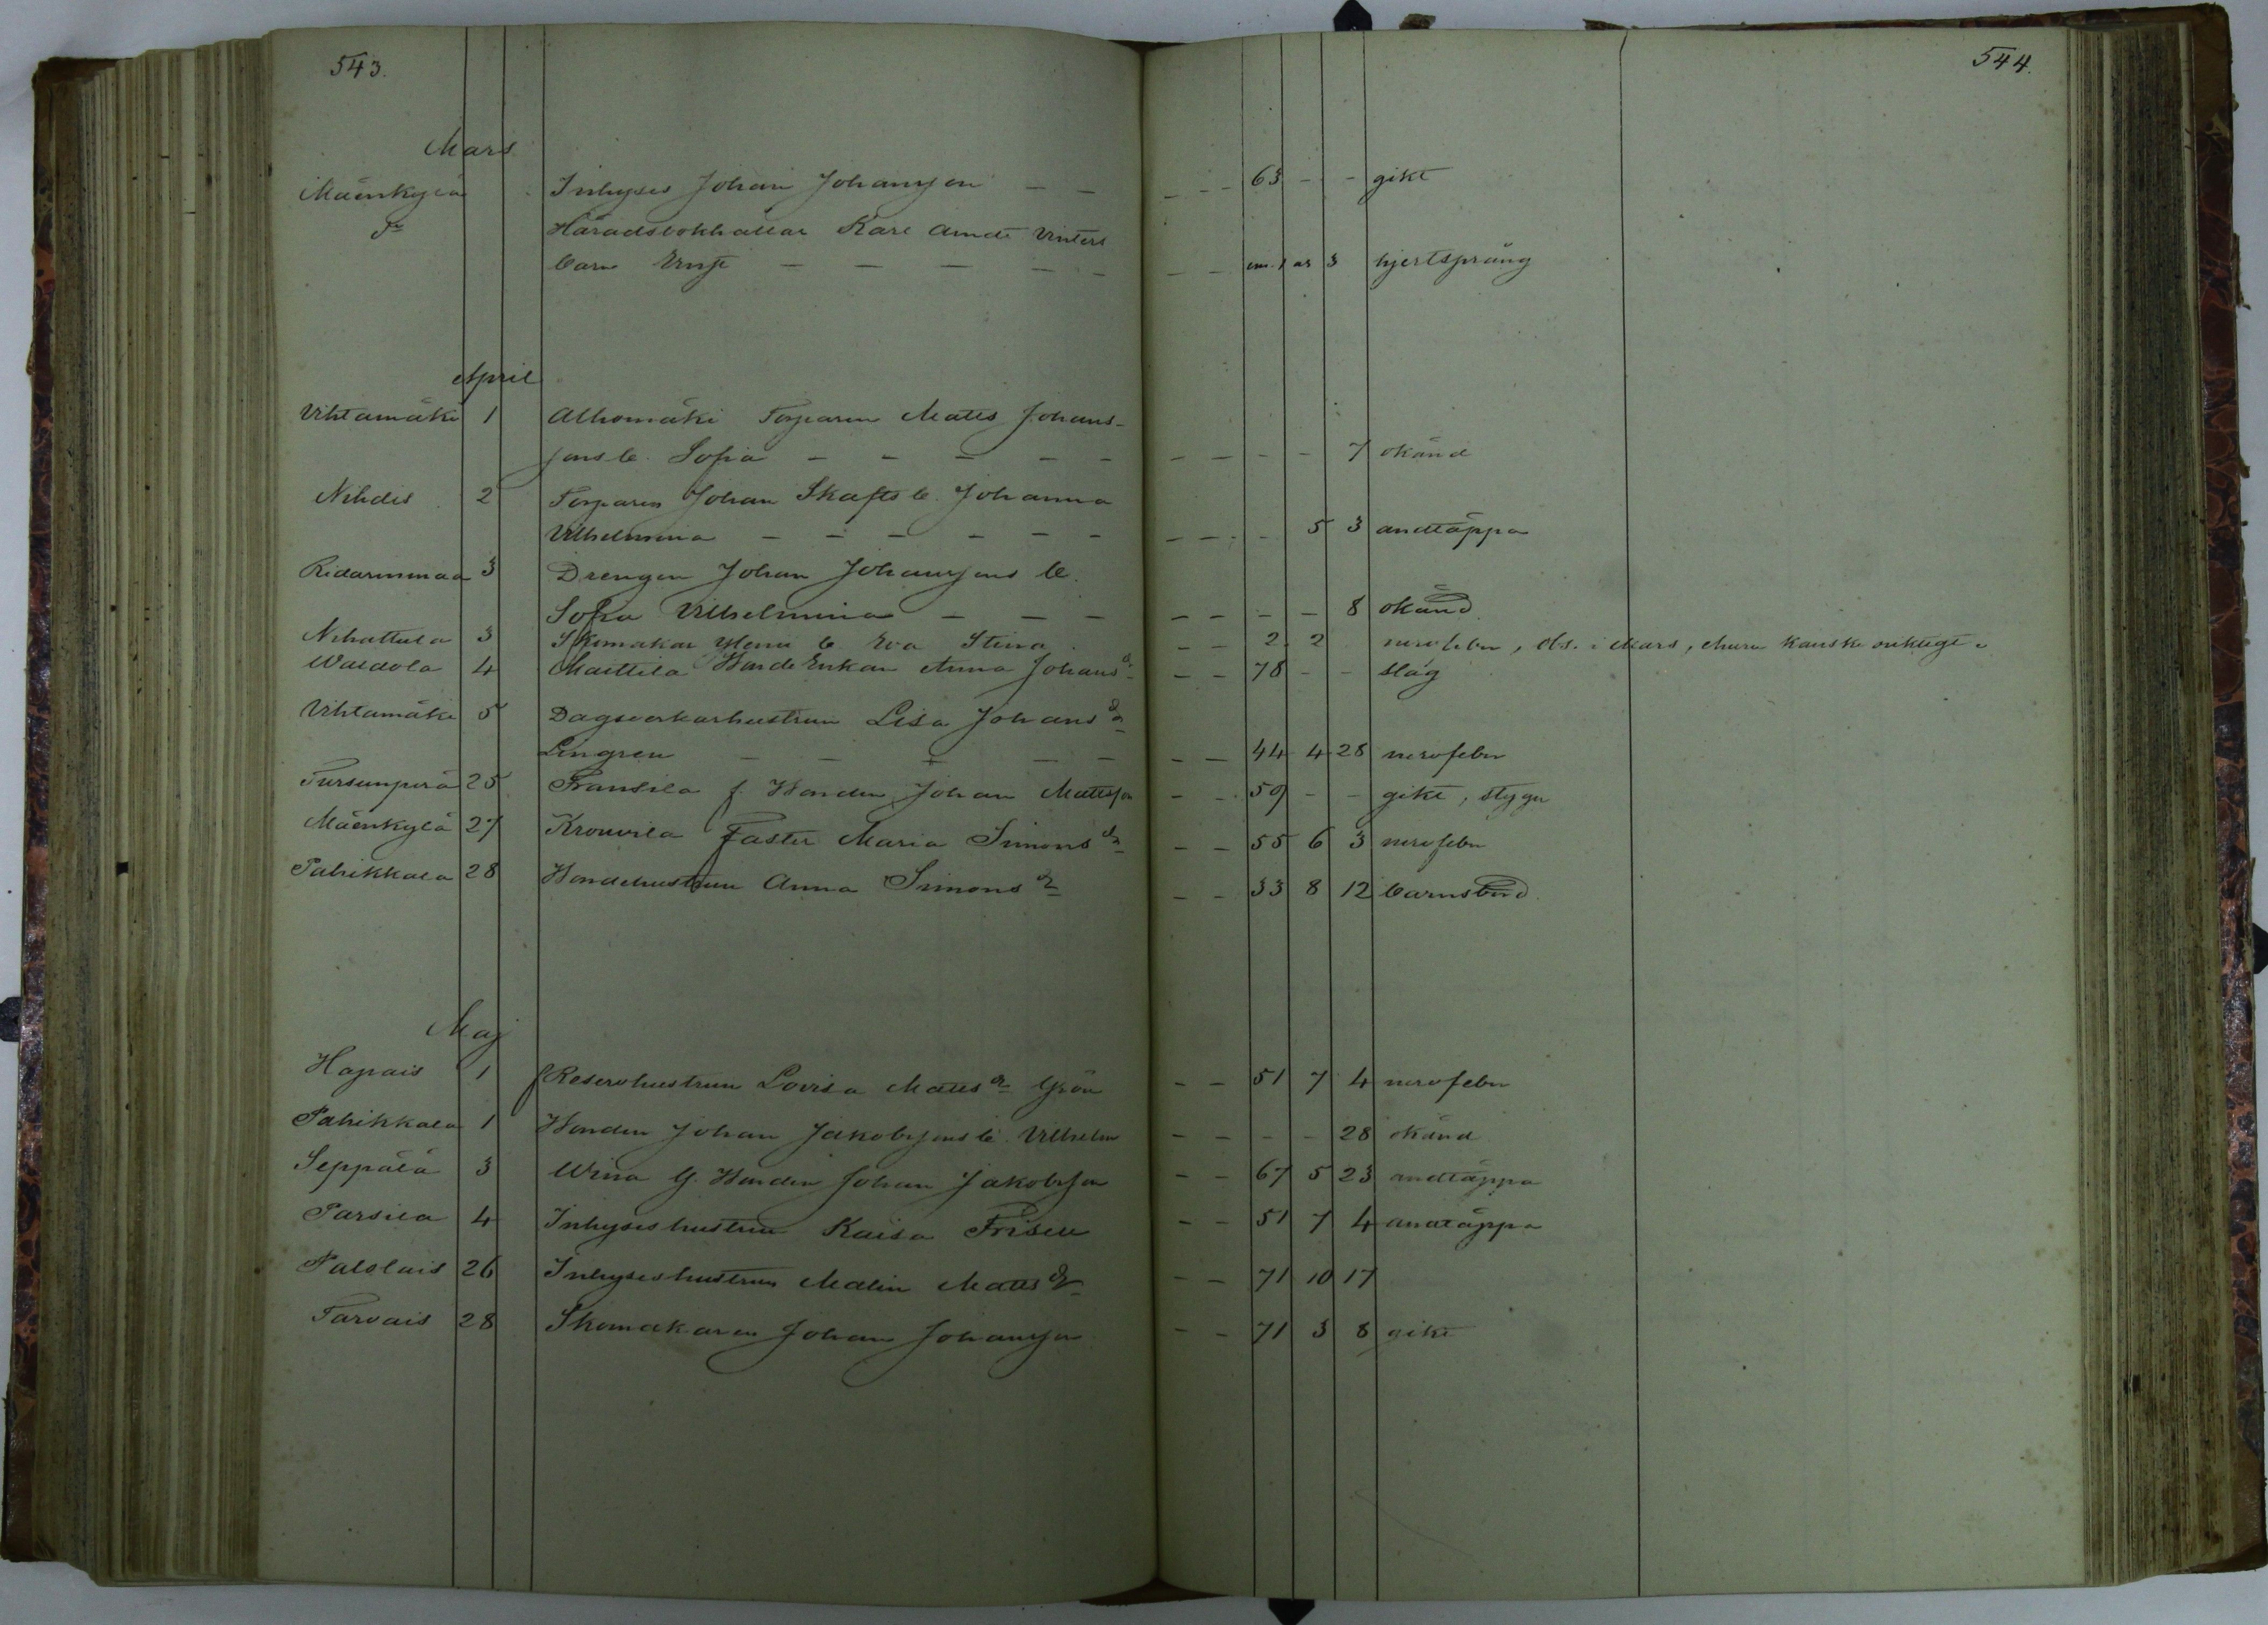 543.
544.
Mars
Mäenkylä Inhyses Johan Johansson — — — — 63 - - gikt
Häradsbokhållar Karl
barn — — — — — — — 3 hjertsprång
April
Vihtamäki 1 Alhomäki Torparen Matts Johans-
sons b. Sofia — — — — — — — - - 7 okänd
Nihdis 2 Torparen Johan Skafts b. Johanna
Vilhelmina — — — — — — — — - 5 3 andtäppa
Ridarinmaa 3 Drengen Johan Johanssons b.
Sofia Vilhelmina — — — — — - - 8 okänd
Nihattula 3 Skomakar b Eva Stina — — 2 2 nervfeber, obs. i Mars, kanske oriktigt
Waldola 4 Maittela Bonde Enkan Anna Johansdr — — 78 - - slag
Vihtamäki 5 Dagsverkarhustrun Lisa Johansdr
Lingren — — — — — — — 44 4 28 nervfeber
Tursunperä 25 Fransila f. Bonden Johan Mattsson — — 59 - - gikt, stygn
Mäenkylä 27 Krouvila Faster Maria Simonsdr — — 55 6 3 nervfeber
Pahikkala 28 Bondehustrun Anna Simonsdr — — 33 8 12 barnsbörd
Maj
Hapais 1 f Reservhustrun Lovisa Mattsdr Grön — — 51 7 4 nervfeber
Pahikkala 1 Bonden Johan Jakobssons b. Vilhelm — — - - 28 okänd
Seppälä 3 g. Bonden Johan Jakobsson — — 67 5 23 andtäppa
Parsila 4 Inhyseshustrun Kaisa Frisell — — 51 7 4 andtäppa
Palslais 26 Inhyseshustrun Malin Mattsdr — — 71 10 17
Tarvais 28 Skomakaren Johan Johansson — — 71 3 8 gikt